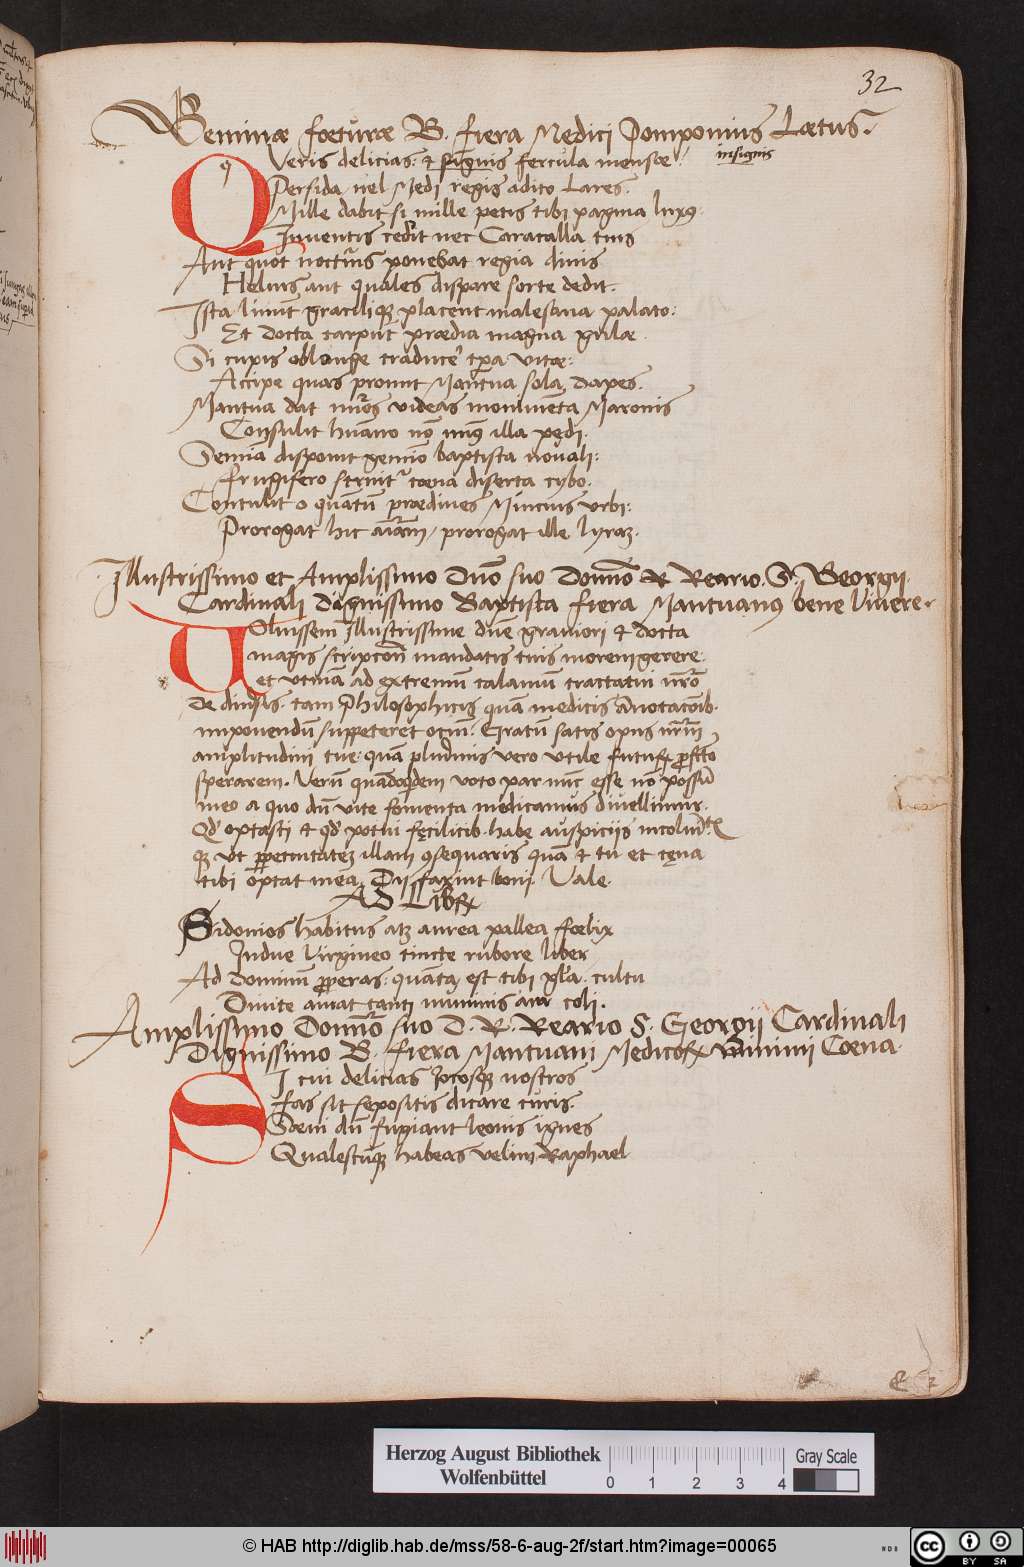 32
Geminæ foeturæ B. fiera Medici Pomponius Lætus.
Q Veris delicias: & signis fercula mensæ: insignis
Persida vel Medi regis adito Lares.
Mille dabit si mille petis tibi pagina luxꝰ:
Inventis cedit nec Caracalla tuis
Aut quot nocturnis ponebat regia divis
Helius aut quales dispare sorte dedit.
Ista livint graciliqꝫ placent malesana palato:
Et docta carpunt prædia magna gulæ.
Si cupis oblongæ traducere tꝑa vitæ:
Accipe quas promit Mantua sola dapes.
Mantua dat nuᷣos videas monumēta Maronis
Consulit huāno nō minꝰ illa pedi.
Semia disponit gemio baptista novali:
frugifero struitᷣ coena diserta cybo.
Contulit o quantū prædives Mincius urbi:
Prorogat hic aīam, prorogat ille lyraꝫ.
Illustrissimo et Amplissimo Dnō suo Domnō R Reario. S. Georgii
Cardinali Dignissimo Baptista fiera Mantuanꝰ bene Vivere.
Voluissem Illustrissime dnē graviori & docta
magis scripcōn mandatis tuis morem gerere:
et utinā ad extremū calamū tractatui nrō
de divsis tam Philosophicis quā medicis ānotacōib.
imponendū suppeteret ociū. Gratū satis opus nrm
amplitudini tue: quā pludimis vero utile futurꝝ ꝓfcto
sperarem. Verū quādoqdem voto par nūc esse nō possū
meo a quo dū vite fomenta medicamus divellimur.
Qd optasti & qd potui fęcilicib. habe auspiciis incolumitꝫ
qꝫ ut ꝑpetuitateꝫ illam ꝯsequaris quā & tu et cęna
tibi optat mea Dii faxint boni. Vale.
AD Libꝝ
Sidonios habitus atqꝫ aurea pallea fœlix
Indue Virgineo tincte rubore liber
Ad dominum ꝓperas: quāta est tibi glᷣa. cultu
Divite amat tanti numinis aura coli.
Amplissimo Domnō suo D. R. Reario S. Georgii Cardinali
Dignissimo B. fiera Mantuani Medicoꝝ minimi Coena.
S I cui delicias Iocosqꝫ nostros
fas sit sepositis dicare curis.
Sæui dū fugiant leonis ignes
Qualescūqꝫ habeas velim Raphael
Herzog August Bibliothek
Wolfenbüttel
0 1 2 3 4
Gray Scale
© HAB http://diglib.hab.de/mss/58-6-aug-2f/start.htm?image=00065
cc BY SA